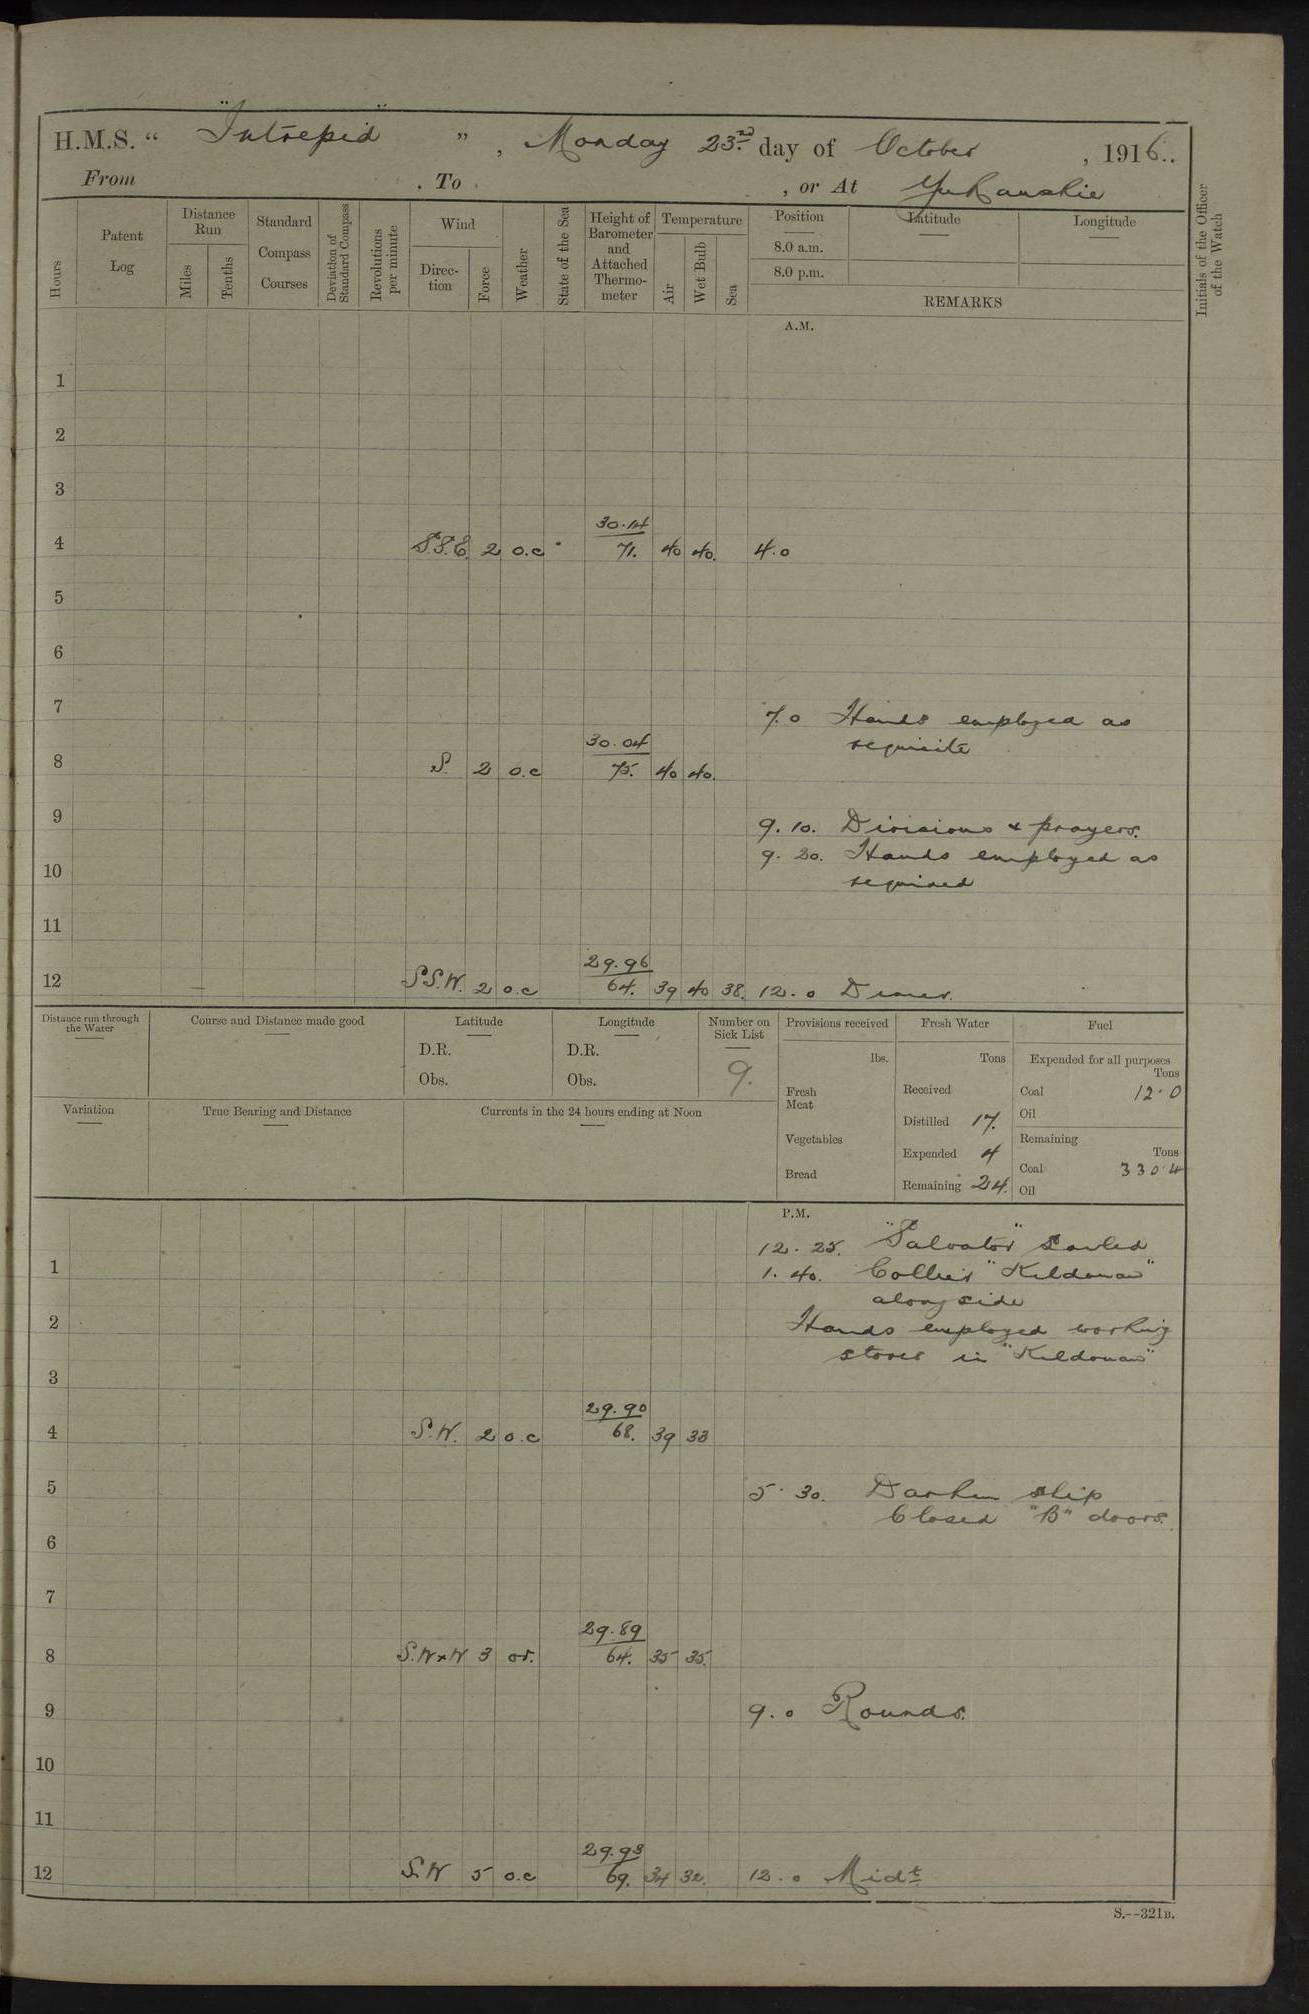 H.M.S. " "Intrepid" ", Monday 23rd day of October, 1916.
From . To , or At Yukanskie
Hours
Patent Log
Distance Run
Miles
Tenths
Standard Compass Courses
Deviation of Standard Compass
Revolutions per minute
Wind
Direction
Force
Weather
State of the Sea
Height of Barometer and Attached Thermometer
Temperature
Air
Wet Bulb
Sea
Position
8.0 a.m.
8.0 p.m.
Latitude
Longitude
REMARKS
Initials of the Officer of the Watch
A.M.
1
2
3
30.14
4 S.S.E. 2 o.c 71. 40 40. 4.0
5
6
7 7.0 Hands employed as
requisite
30.04
8 S. 2 o.c 75. 40 40.
9 9.10. Divisions & prayers.
9.20. Hands employed as
10 required
11
29.96
12 S.S.W. 2 o.c 64. 39 40 38. 12.0 Dinner.
Distance run through the Water
Course and Distance made good
Latitude
D.R.
Obs.
Longitude
D.R.
Obs.
Number on Sick List
9.
Provisions received
lbs.
Fresh Meat
Vegetables
Bread
Fresh Water
Tons
Received
Distilled 17.
Expended 4
Remaining 24.
Fuel
Expended for all purposes
Tons
Coal 12.0
Oil
Remaining
Tons
Coal 330.4
Oil
Variation
True Bearing and Distance
Currents in the 24 hours ending at Noon
P.M.
12.25. "Salvator" sailed
1 1.40. Collier "Kildonan"
alongside
2 Hands employed working
stores in "Kildonan"
3
29.90
4 S.W. 2 o.c 68. 39 38
5 5.30. Darken ship
Closed "B" doors.
6
7
29.89
8 S.W x W 3 or. 64. 35 35.
9 9.0 Rounds.
10
11
29.93
12 S.W 5 o.c 69. 34 32. 12.0 Midt.
S.--321B.